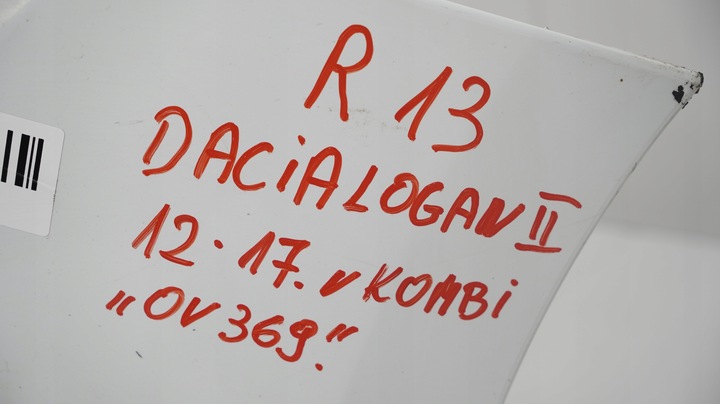 R 13
DACiA LOGAN II
12 · 17. v KOMBi
„OV369.“